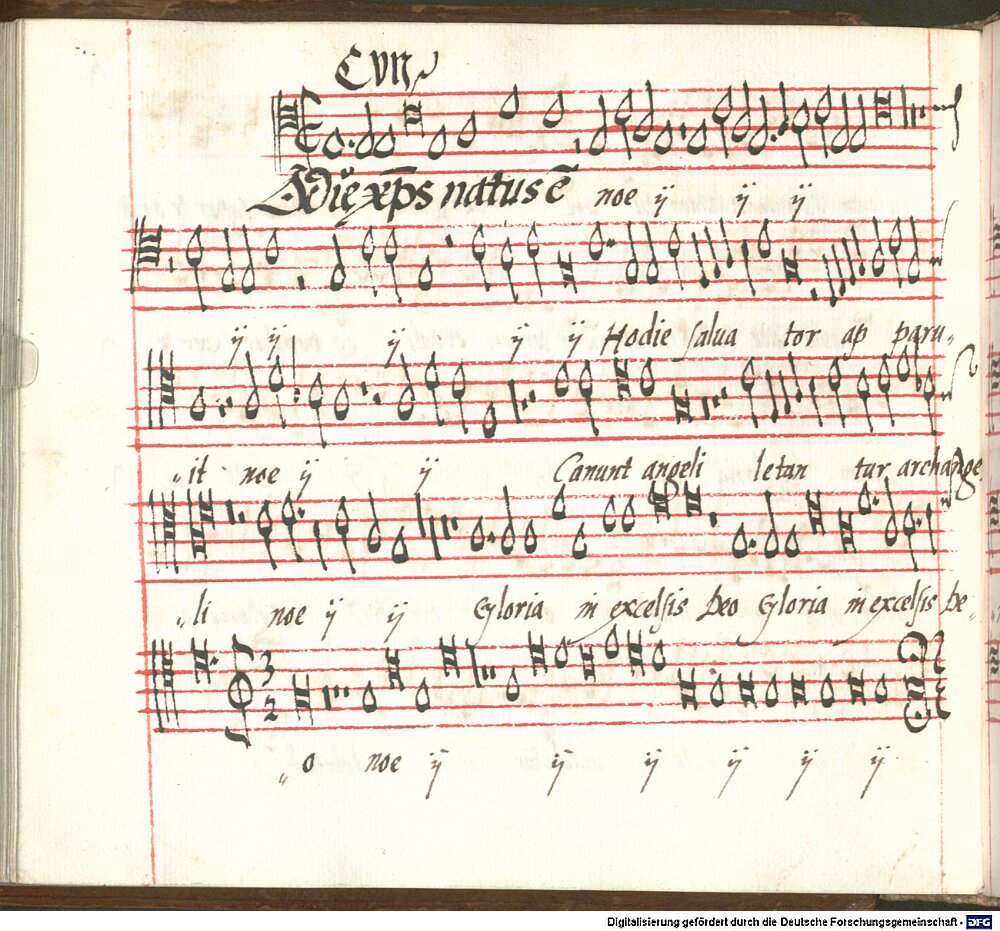 Cyn
Odiẽ xp̄s natus ẽ noe ÿ ÿ ÿ
ÿ ÿ ÿ ÿ ÿ Hodie salua tor ap paru„
„it noe ÿ ÿ Canunt angeli letan tur archange
„li noe ÿ ÿ Gloria in excelsis Deo Gloria in excelsis De„
3
2
„o noe ÿ ÿ ÿ ÿ ÿ ÿ
Digitalisierung gefördert durch die Deutsche Forschungsgemeinschaft - DFG